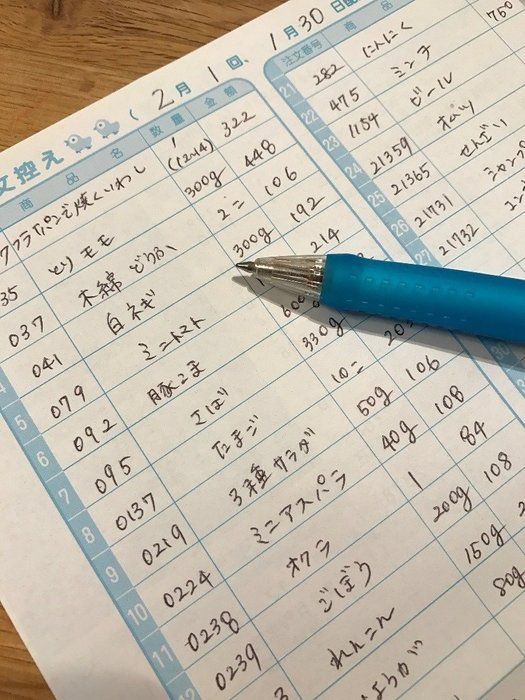 文控え (2月1回、1月30日配
商品名 数量 金額
フライパンで焼くいわし 1(12~14) 322
35 とりモモ 300g 448
037 木綿どうふ 2コ 106
4 041 白ネギ 300g 192
5 079 ミニトマト 214
6 092 豚こま
7 095 さば 330g
8 0137 たまご 10コ
9 0219 3種サラダ 50g 106
10 0224 ミニアスパラ 40g 108
11 0238 オクラ 1 84
12 0239 ごぼう 200g 108
れんこん 150g
しょうが 80g
注文番号 商品
21 282 にんにく
22 475 ミンチ
23 1154 ビール
24 21359 オムツ
25 21365
26 21731 シャンプ
27 21732